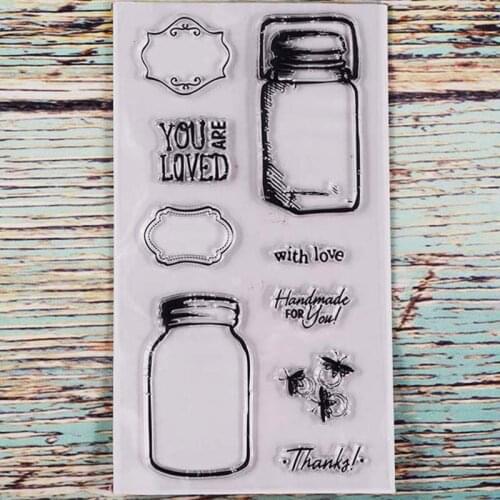 YOU ARE
LOVED
with love
Handmade
FOR You!
Thanks!